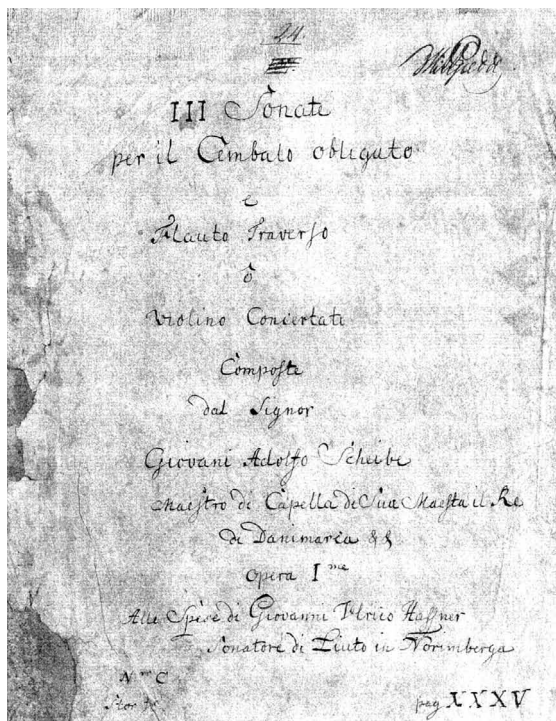 24.
III Sonate
per il Cembalo obligato
e
Flauto Traverso
ò
Violino Concertate
Composte
dal Signor
Giovani Adolfo Scheibe
Maestro di Capella di Sua Maesta il Re
di Danimarca &&
Opera I me
Alle Spese di Giovanni Ulrico Haffner
Sonatore di Liuto in Norimberga
Nro C
pag XXXV